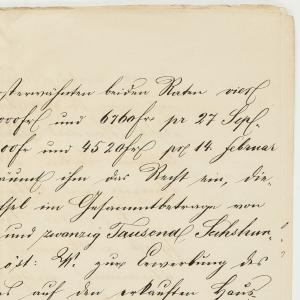 sterwähnten beiden Raten vier
000fr und 6760fr pr 27 Sept.
00fr und 4520fr pr 14. Februar
räumt ihm das Recht ein, die-
im Gesammtbetrage von
und zwanzig Tausend Sechshun-
öst: W. zur Erwerbung des
auf den erkauften Haus